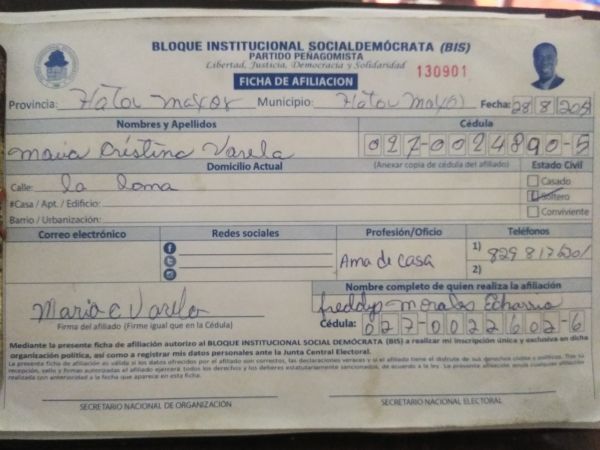 BLOQUE INSTITUCIONAL SOCIALDEMÓCRATA (BIS)
PARTIDO PEÑAGOMISTA
Libertad, Justicia, Democracia y Solidaridad
FICHA DE AFILIACION 130901
Provincia: Hato mayor Municipio: Hato Mayor Fecha: 28 8 20
Nombres y Apellidos Cédula
Maria Cristina Varela 027-0024890-5
Domicilio Actual (Anexar copia de cédula del afiliado) Estado Civil
Calle: la loma Casado
#Casa / Apt. / Edificio: Soltero
Barrio / Urbanización: Conviviente
Correo electrónico Redes sociales Profesión/Oficio Teléfonos
Ama de casa 1) 829 817
2)
Nombre completo de quien realiza la afiliación
Maria C Varela freddy morales
Firma del afiliado (Firme igual que en la Cédula) Cédula: 027-0022602-6
Mediante la presente ficha de afiliación autorizo al BLOQUE INSTITUCIONAL SOCIAL DEMÓCRATA (BIS) a realizar mi inscripción única y exclusiva en dicha
organización política, así como a registrar mis datos personales ante la Junta Central Electoral.
La presente ficha de afiliación es válida si los datos ofrecidos por el afiliado son correctos, las declaraciones veraces y si el afiliado tiene el disfrute de sus derechos civiles y políticos. Tras su
recepción, sello y firmas autorizadas el afiliado ejercerá todos los derechos y los deberes estatutariamente sancionados, de acuerdo a la ley. La presente afiliación anula cualquier afiliación
realizada con anterioridad a la fecha que aparece en esta ficha.
SECRETARIO NACIONAL DE ORGANIZACIÓN SECRETARIO NACIONAL ELECTORAL